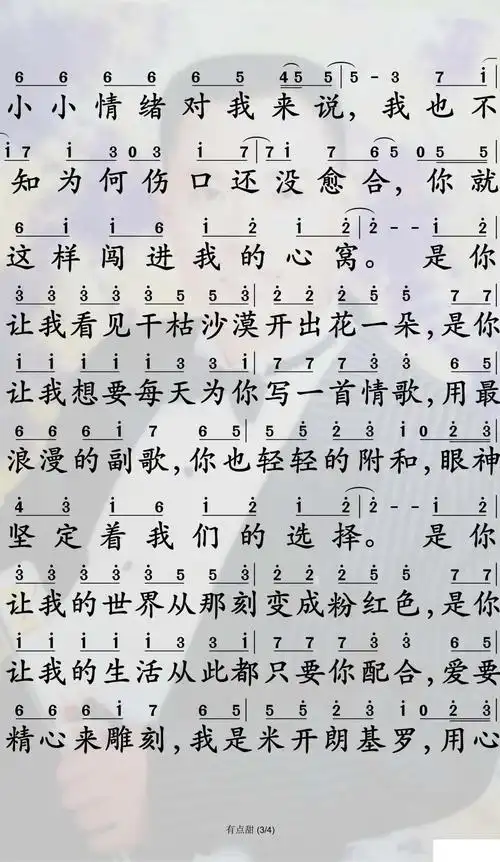 6 6 6 6 6 5 4 5 5 | 5 - 3 7 i
小小情绪对我来说，我也不
i 7 i 3 0 3 i 7 | 7 i 7 6 5 0 5 5
知为何伤口还没愈合，你就
6 i i 6 i 2 i 2 | 2 - - i 2
这样闯进我的心窝。是你
3 3 3 3 3 5 5 3 | 2 2 2 5 5 7 7
让我看见干枯沙漠开出花一朵，是你
i i i i i 3 3 i | 7 7 7 3 3 6 5
让我想要每天为你写一首情歌，用最
6 6 6 i 7 6 5 | 5 5 2 3 i 0 2 3
浪漫的副歌，你也轻轻的附和，眼神
4 3 i 6 i 2 i 2 | 2 - - i 2
坚定着我们的选择。是你
3 3 3 3 3 5 5 3 | 2 2 2 5 5 7 7
让我的世界从那刻变成粉红色，是你
i i i i i 3 3 i | 7 7 7 3 3 6 5
让我的生活从此都只要你配合，爱要
6 6 6 i 7 6 5 | 5 5 2 3 i 0 2 3
精心来雕刻，我是米开朗基罗，用心
有点甜 (3/4)